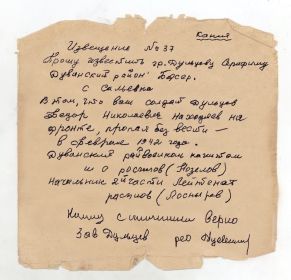 Копия
Извещение № 37
Прошу известить гр. Дульцову Серафиму
Дуванский район Башсер.
с Сальевка
В том, что ваш солдат Дульцов
Федор Николаевич находясь на
фронте, пропал без вести –
в феврале 1942 года.
Дуванский райвоенком капитан
п о росписов (Козелов)
Начальник 2й части Лейтенант
росписов
Копия с подлинным Верно
Зав Дульцев